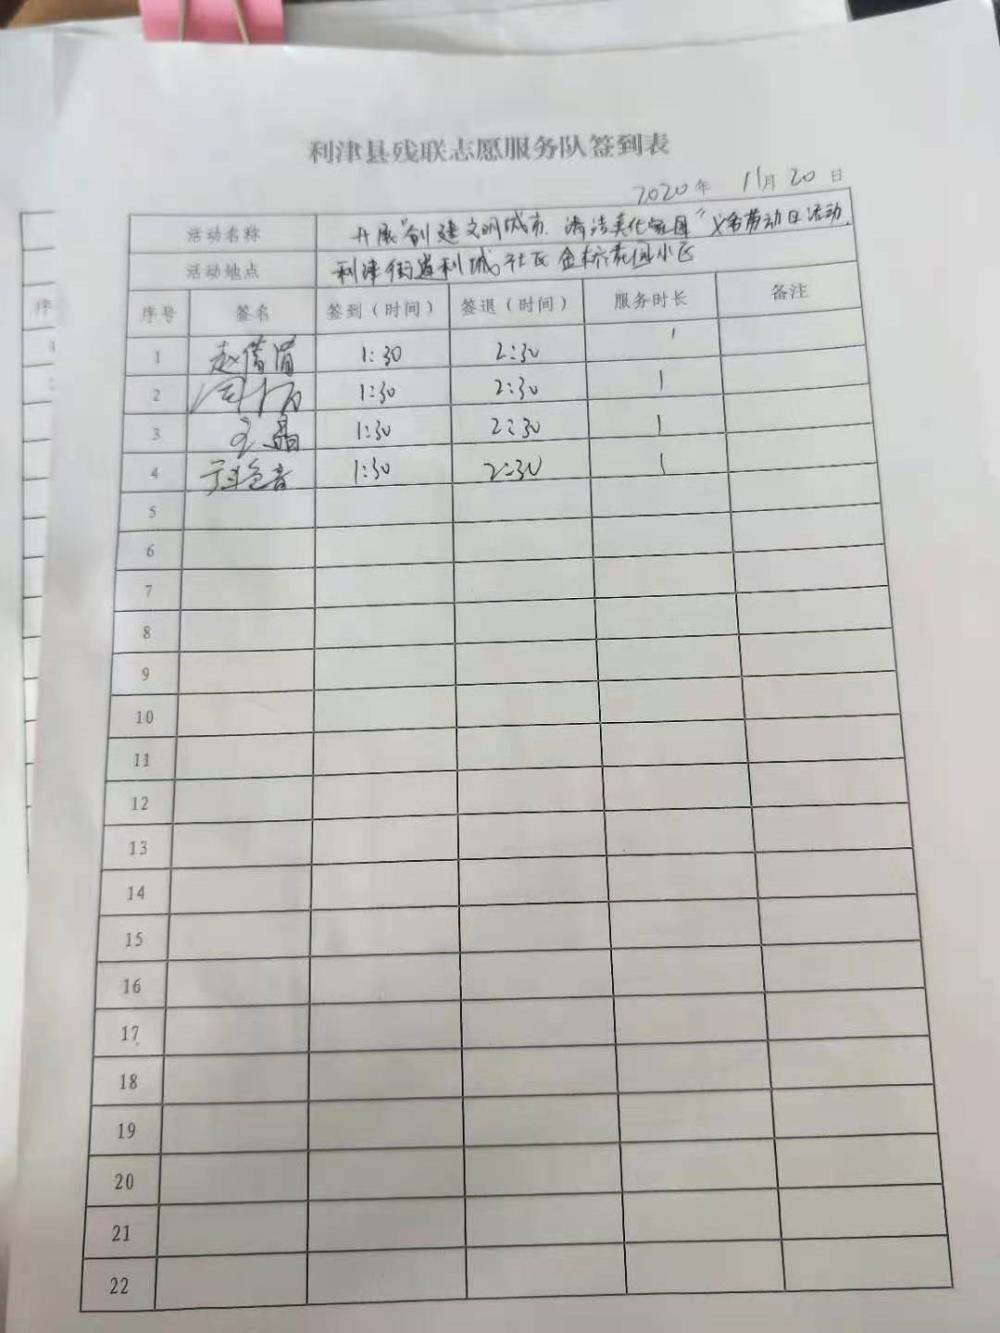 利津县残联志愿服务队签到表
2020年 11月 20日
活动名称 开展"创建文明城市 清洁美化家园"义务劳动日活动.
活动地点 利津街道利城社区金桥花园小区
序号 签名 签到(时间) 签退(时间) 服务时长 备注
1 赵倩倩 1:30 2:30 1
2 1:30 2:30 1
3 王晶 1:30 2:30 1
4 1:30 2:30 1
5
6
7
8
9
10
11
12
13
14
15
16
17
18
19
20
21
22
序